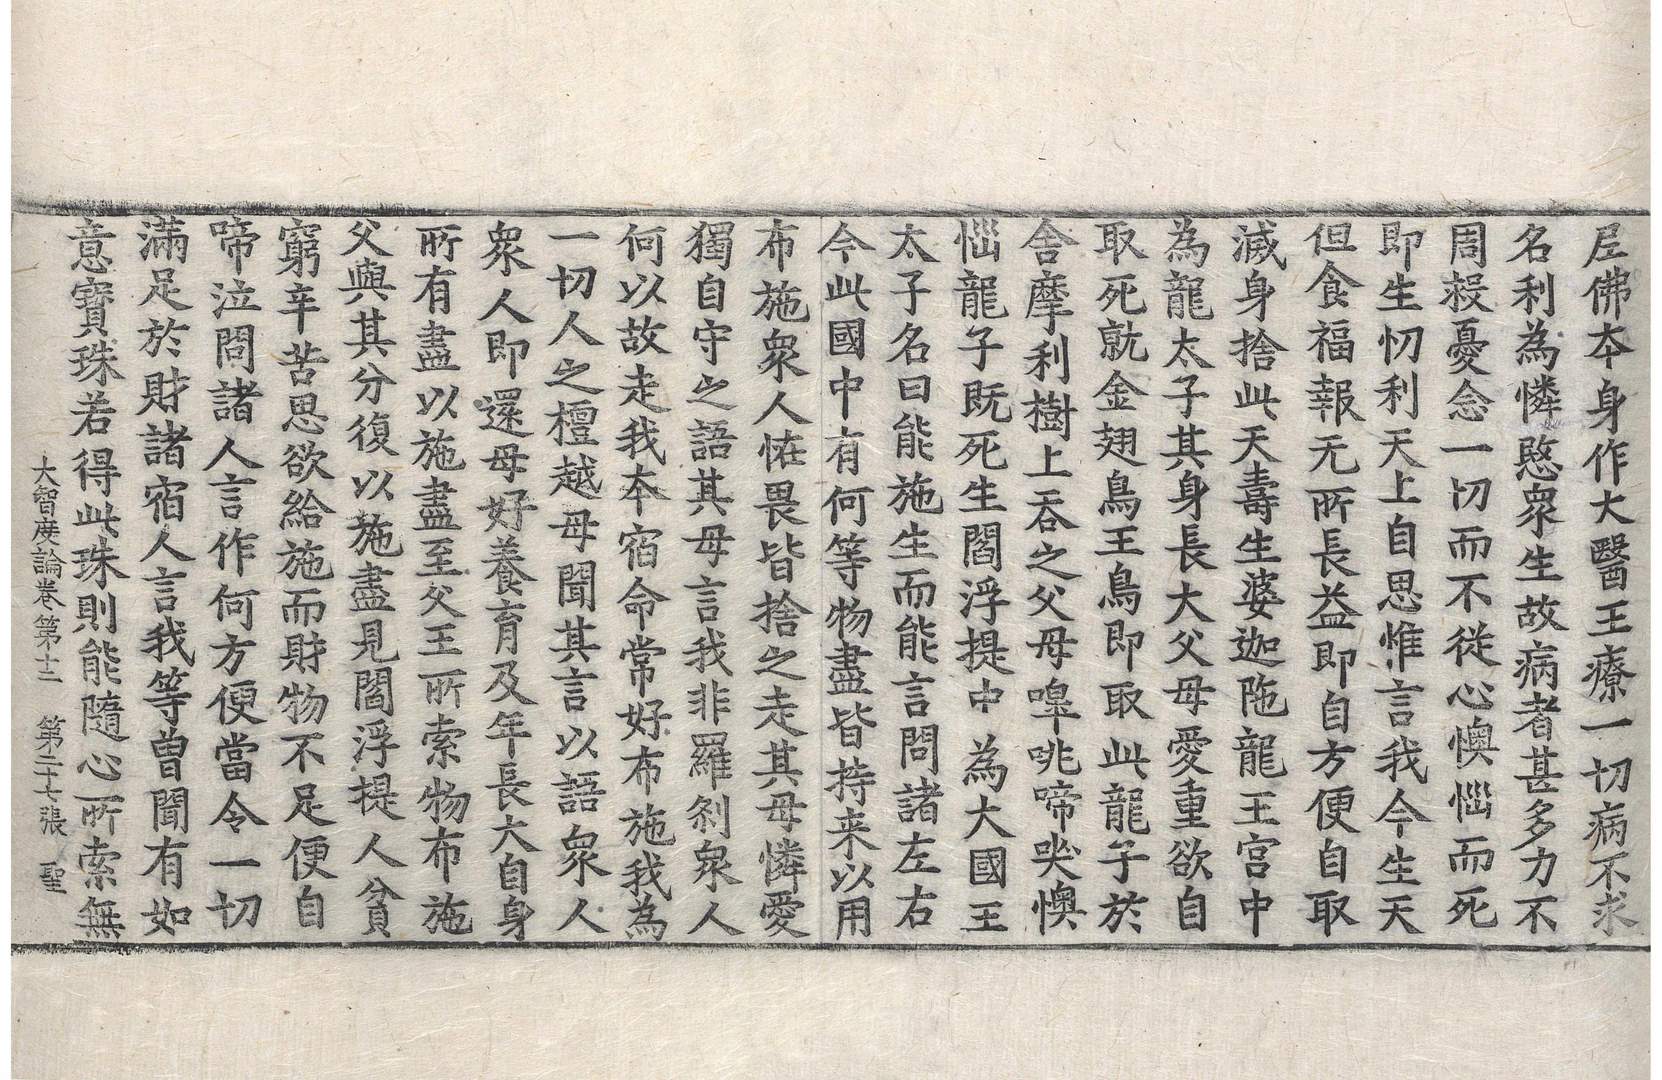 尼佛夲身作大醫王療一切病不求
名利為憐愍衆生故病者甚多力不
周救憂念一切而不從心懊惱而死
即生忉利天上自思惟言我今生天
但食福報无所長益即自方便自取
滅身捨此天壽生婆迦陁龍王宮中
為龍太子其身長大父母愛重欲自
取死就金翅鳥王鳥即取此龍子於
舍摩利樹上吞之父母嘷咷啼哭懊
惱龍子既死生閻浮提中為大國王
太子名曰能施生而能言問諸左右
今此國中有何等物盡皆持来以用
布施衆人恠畏皆捨之走其母憐愛
獨自守之語其母言我非羅剎衆人
何以故走我夲宿命常好布施我為
一切人之檀越母聞其言以語衆人
衆人即還母好養育及年長大自身
所有盡以施盡至父王所索物布施
父與其分復以施盡見閻浮提人貧
窮辛苦思欲給施而財物不足便自
啼泣問諸人言作何方便當令一切
滿足於財諸宿人言我等曾聞有如
意寶珠若得此珠則能隨心所索無
大智度論卷第十二 第二十七張 聖